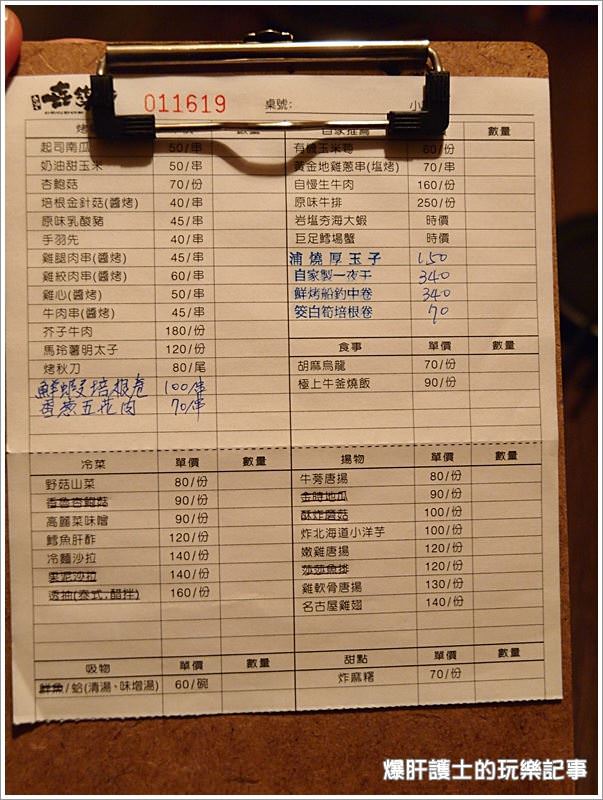 011619 桌號:
起司南瓜 50/串
奶油甜玉米 50/串
杏鮑菇 70/份
培根金針菇(醬烤) 40/串
原味乳酸豬 45/串
手羽先 40/串
雞腿肉串(醬烤) 45/串
雞絞肉串(醬烤) 60/串
雞心(醬烤) 50/串
牛肉串(醬烤) 45/串
芥子牛肉 180/份
馬玲薯明太子 120/份
烤秋刀 80/尾
鮮蝦培根卷 100/串
香蔥五花肉 70/串
自家推薦 數量
有機玉米筍 60/份
黃金地雞蔥串(塩烤) 70/串
自慢生牛肉 160/份
原味牛排 250/份
岩塩夯海大蝦 時價
巨足鱈場蟹 時價
浦燒厚玉子 150
自家製一夜干 340
鮮烤船釣中卷 340
筊白筍培根卷 70
食事 單價 數量
胡麻烏龍 70/份
極上牛釜燒飯 90/份
冷菜 單價 數量
野菇山菜 80/份
香魯杏鮑菇 90/份
高麗菜味噌 90/份
鱈魚肝酢 120/份
冷麵沙拉 140/份
果泥沙拉 140/份
透抽(泰式.醋拌) 160/份
揚物 單價 數量
牛蒡唐揚 80/份
金時地瓜 90/份
酥炸蘑菇 100/份
炸北海道小洋芋 100/份
嫩雞唐揚 120/份
莎莎魚排 120/份
雞軟骨唐揚 130/份
名古屋雞翅 140/份
吸物 單價 數量
鮮魚/蛤(清湯、味增湯) 60/碗
甜點 單價 數量
炸麻糬 70/份
爆肝護士的玩樂記事